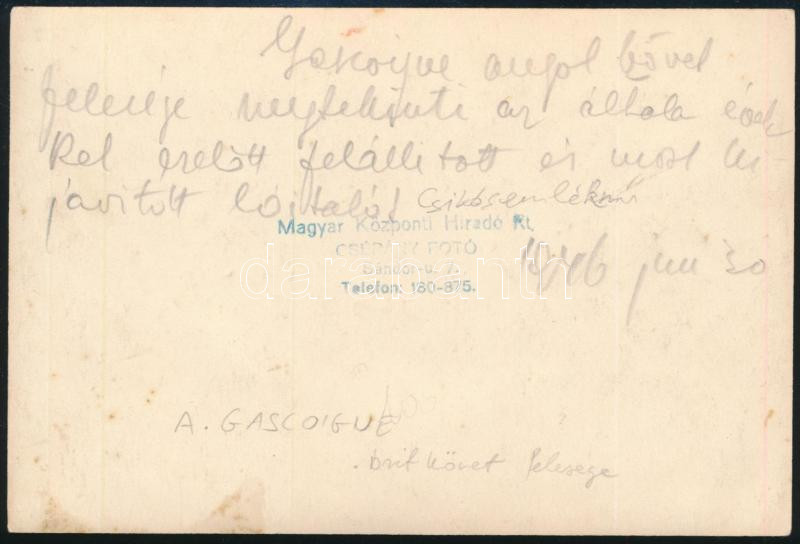 Gaskoigne angol követ
felesége megtekinti az általa évek
kel ezelőtt felállitott és most ki-
javitott lóitatót Csikósemlékmű
Magyar Központi Híradó Rt.
CSÉPÁNY FOTÓ
Sándor-u. 7.
Telefon: 180-875.
1946 jun 30
darabanth
A. GASCOIGNE
brit követ felesége